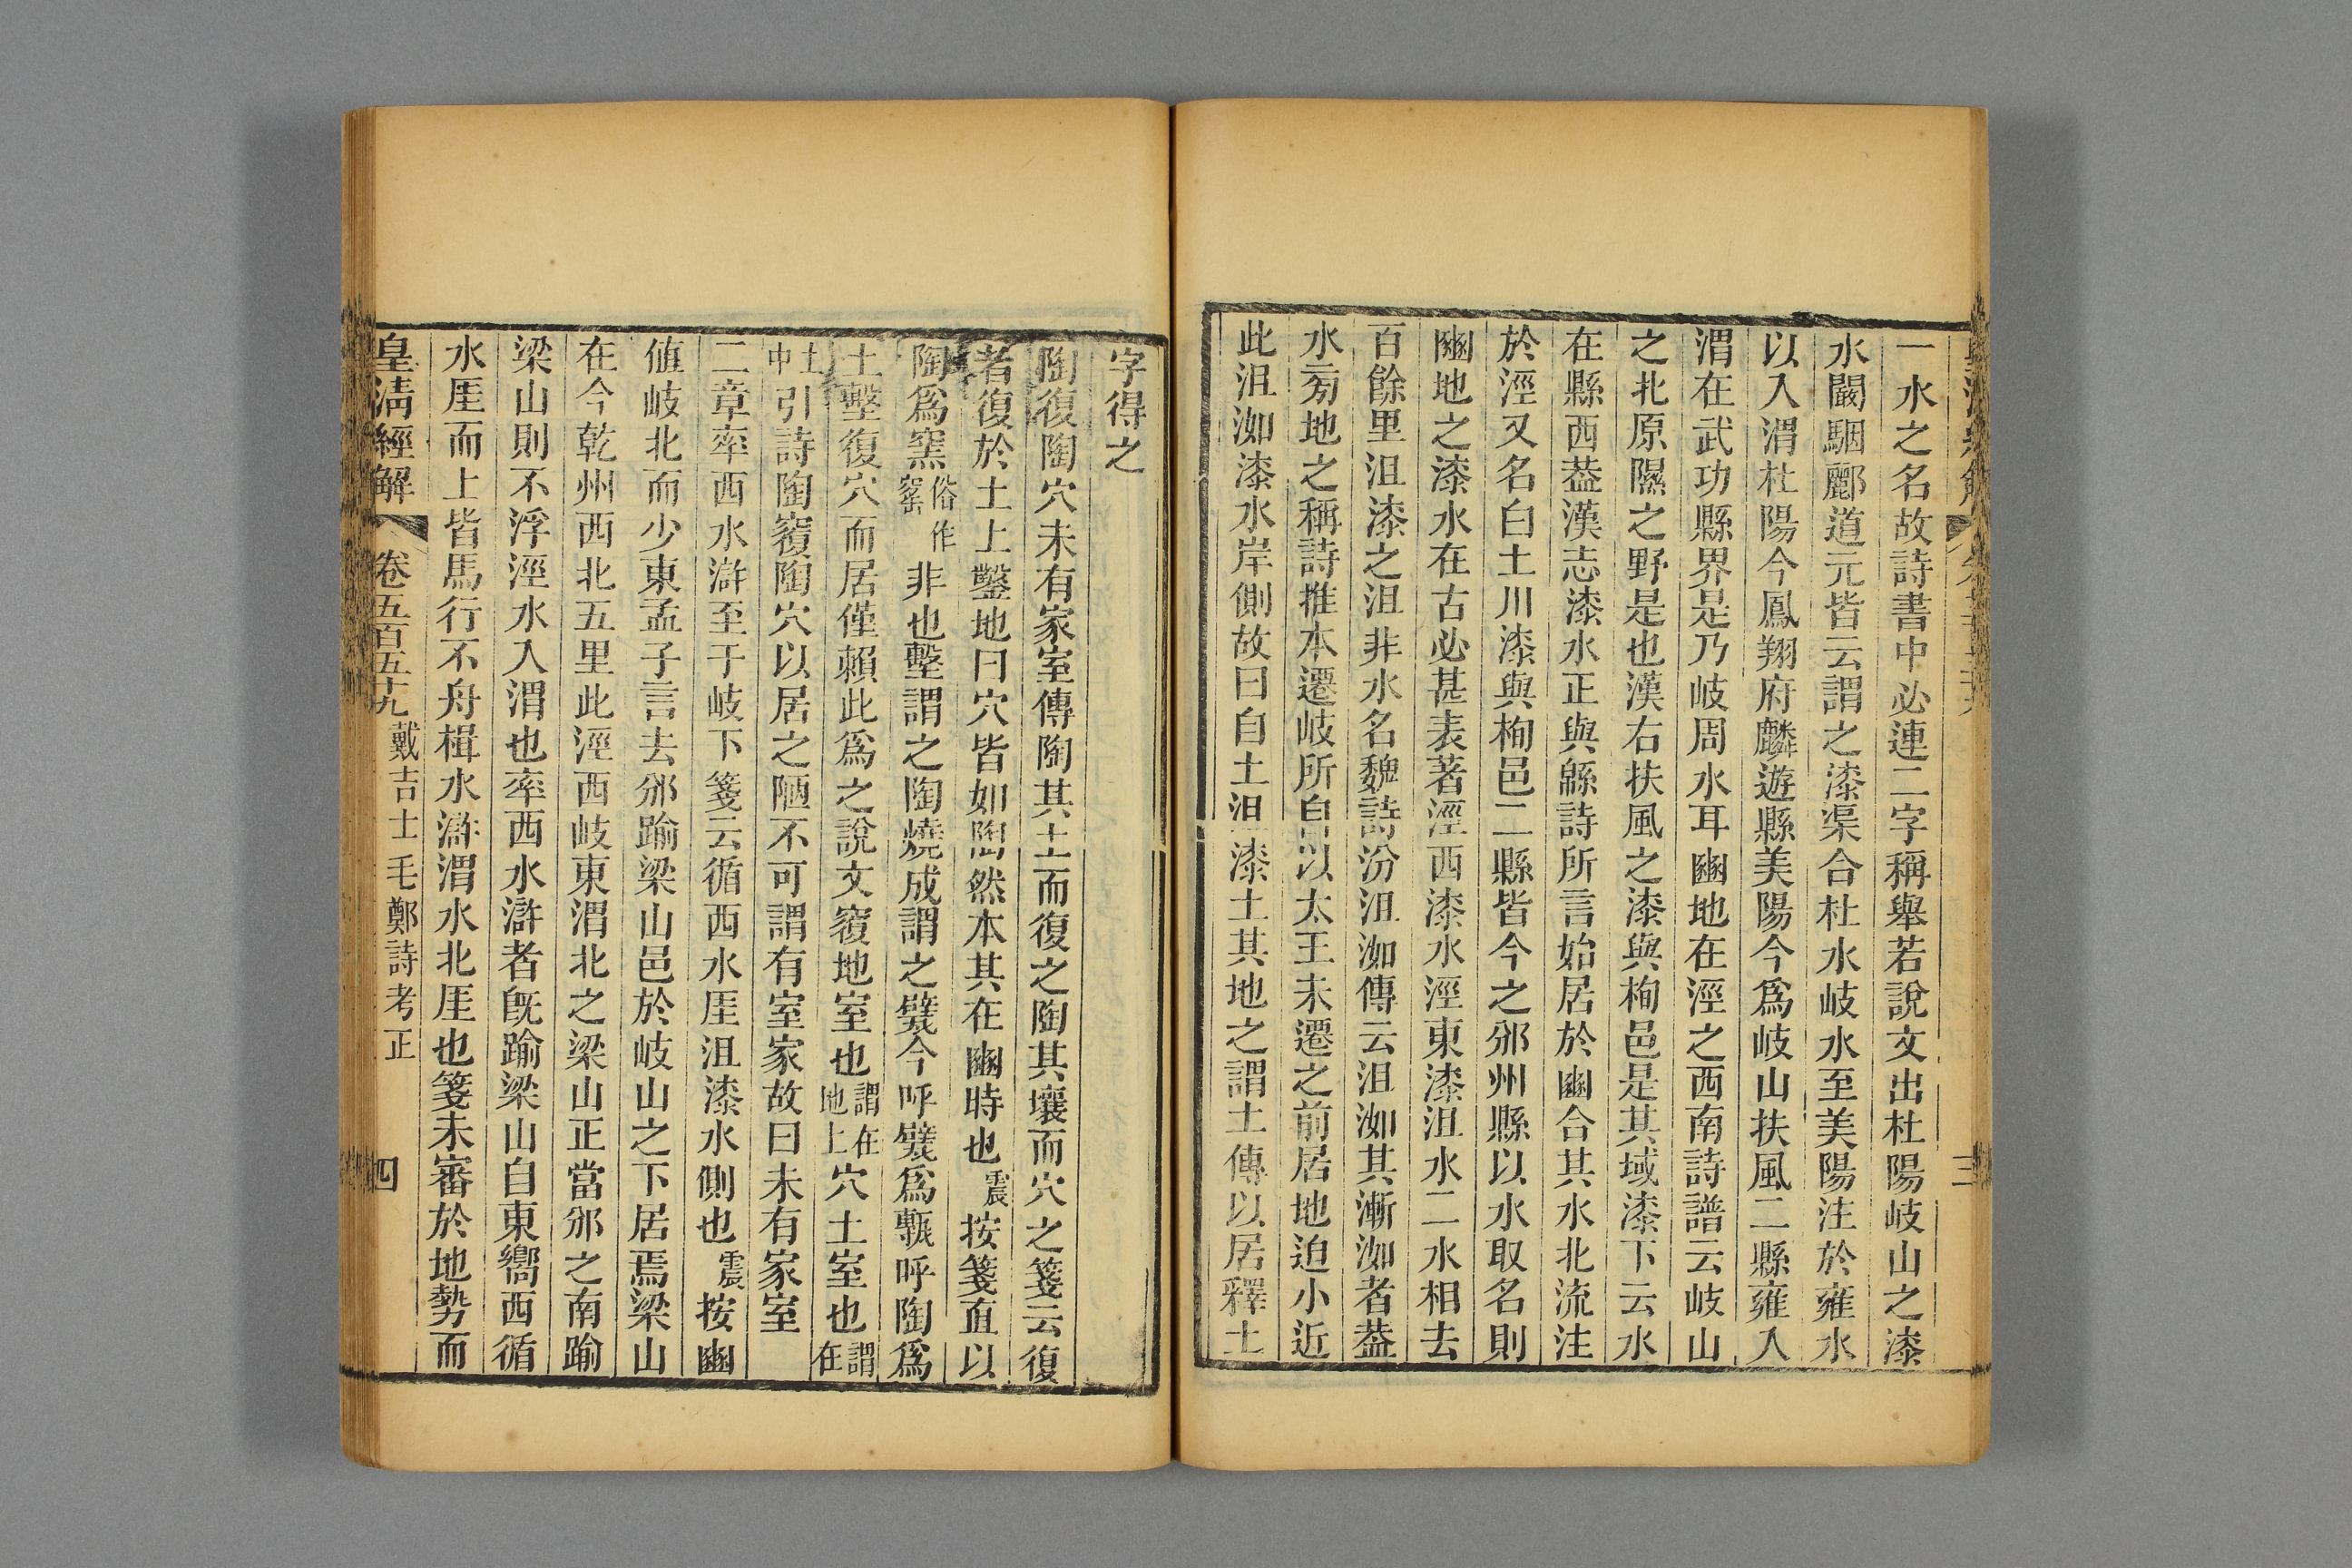 一水之名故詩書中必連二字稱舉若說文出杜陽岐山之漆
水闞駰酈道元皆云謂之漆渠合杜水岐水至美陽注於雍水
以入渭杜陽今鳳翔府麟遊縣美陽今爲岐山扶風二縣雍入
渭在武功縣界是乃岐周水耳豳地在涇之西南詩譜云岐山
之北原隰之野是也漢右扶風之漆與栒邑是其域漆下云水
在縣西葢漢志漆水正與緜詩所言始居於豳合其水北流注
於涇又名白土川漆與栒邑二縣皆今之邠州縣以水取名則
豳地之漆水在古必甚表著涇西漆水涇東漆沮水二水相去
百餘里沮漆之沮非水名魏詩汾沮洳傳云沮洳其漸洳者葢
水㫄地之稱詩推本遷岐所自以太王未遷之前居地迫小近
此沮洳漆水岸側故曰自土沮漆土其地之謂土傳以居釋土
三
字得之
陶復陶穴未有家室傳陶其土而復之陶其壤而穴之箋云復
者復於土上鑿地曰穴皆如陶然本其在豳時也震按箋直以
陶爲窯俗作窰非也墼謂之陶燒成謂之甓今呼甓爲甎呼陶爲
土墼復穴而居僅賴此爲之說文覆地室也謂在地上穴土室也謂在
土中引詩陶覆陶穴以居之陋不可謂有室家故曰未有家室
二章率西水滸至于岐下箋云循西水厓沮漆水側也震按豳
値岐北而少東孟子言去邠踰梁山邑於岐山之下居焉梁山
在今乾州西北五里此涇西岐東渭北之梁山正當邠之南踰
梁山則不浮涇水入渭也率西水滸者旣踰梁山自東嚮西循
水厓而上皆馬行不舟楫水滸渭水北厓也箋未審於地勢而
皇淸經解 卷五百五十九 戴吉士毛鄭詩考正 四